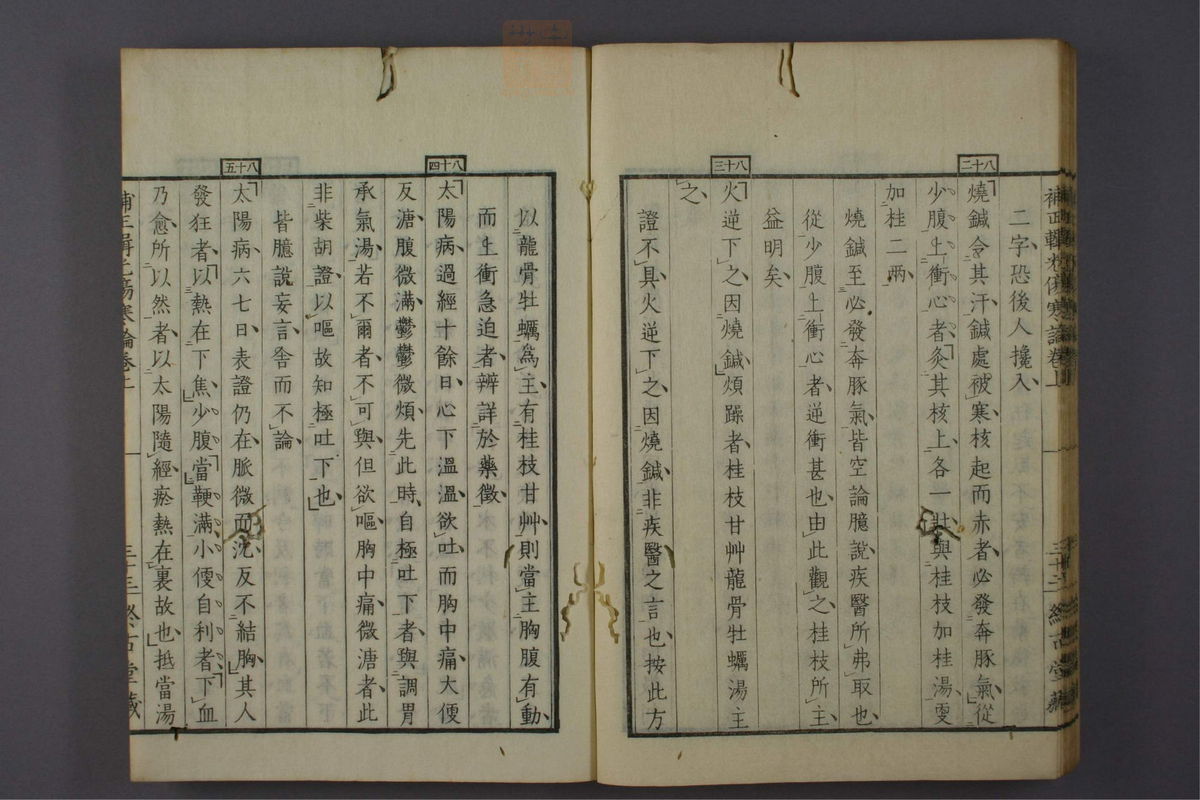 二字恐後人攙入
八十二
燒鍼令其汗鍼處被寒核起而赤者必發奔豚氣從
少腹上衝心者灸其核上各一壯與桂枝加桂湯更
加桂二兩
燒鍼至必發奔豚氣皆空論臆說疾醫所弗取也
從少腹上衝心者逆衝甚也由此觀之桂枝所主
益明矣
八十三
火逆下之因燒鍼煩躁者桂枝甘艸龍骨牡蠣湯主
之
證不具火逆下之因燒鍼非疾醫之言也按此方
以龍骨牡蠣為主有桂枝甘艸則當主胸腹有動
而上衝急迫者辨詳於藥徵
八十四
太陽病過經十餘日心下溫溫欲吐而胸中痛大便
反溏腹微滿鬱鬱微煩先此時自極吐下者與調胃
承氣湯若不爾者不可與但欲嘔胸中痛微溏者此
非柴胡證以嘔故知極吐下也
皆臆說妄言舍而不論
八十五
太陽病六七日表證仍在脈微而沈反不結胸其人
發狂者以熱在下焦少腹當鞕滿小便自利者下血
乃愈所以然者以太陽隨經瘀熱在裏故也抵當湯